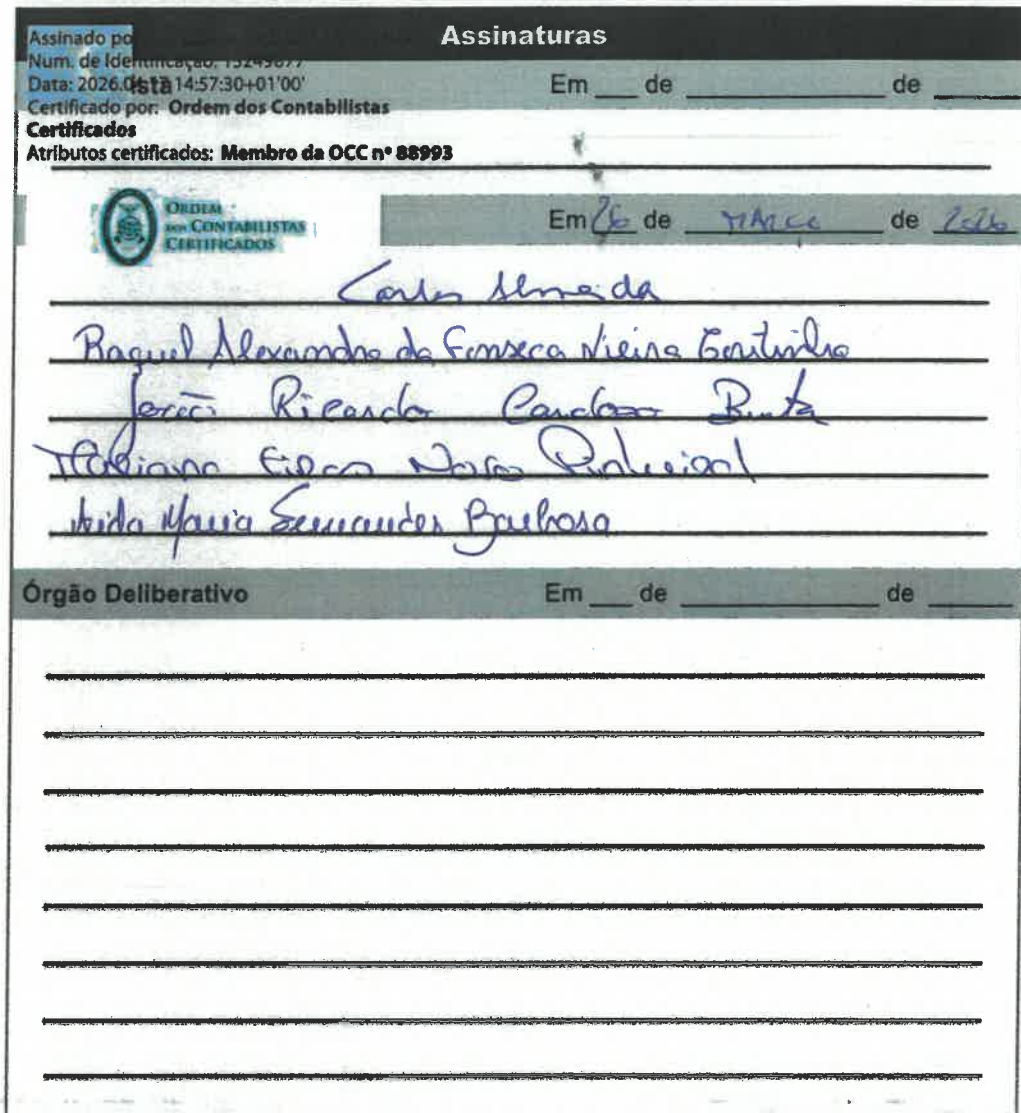 Assinaturas
Assinado po
Num. de Identificação: 13249877
Data: 2026. 14:57:30+01'00'
ista
Em ___ de ___ de ___
Certificado por: Ordem dos Contabilistas
Certificados
Atributos certificados: Membro da OCC nº 88993
ORDEM
DOS CONTABILISTAS
CERTIFICADOS
Em 26 de MARCO de 2026
Carlos Almeida
Raquel Alexandra da Fonseca Vieira Coutinho
João Ricardo Cardoso
Maria Barbosa
Órgão Deliberativo
Em ___ de ___ de ___